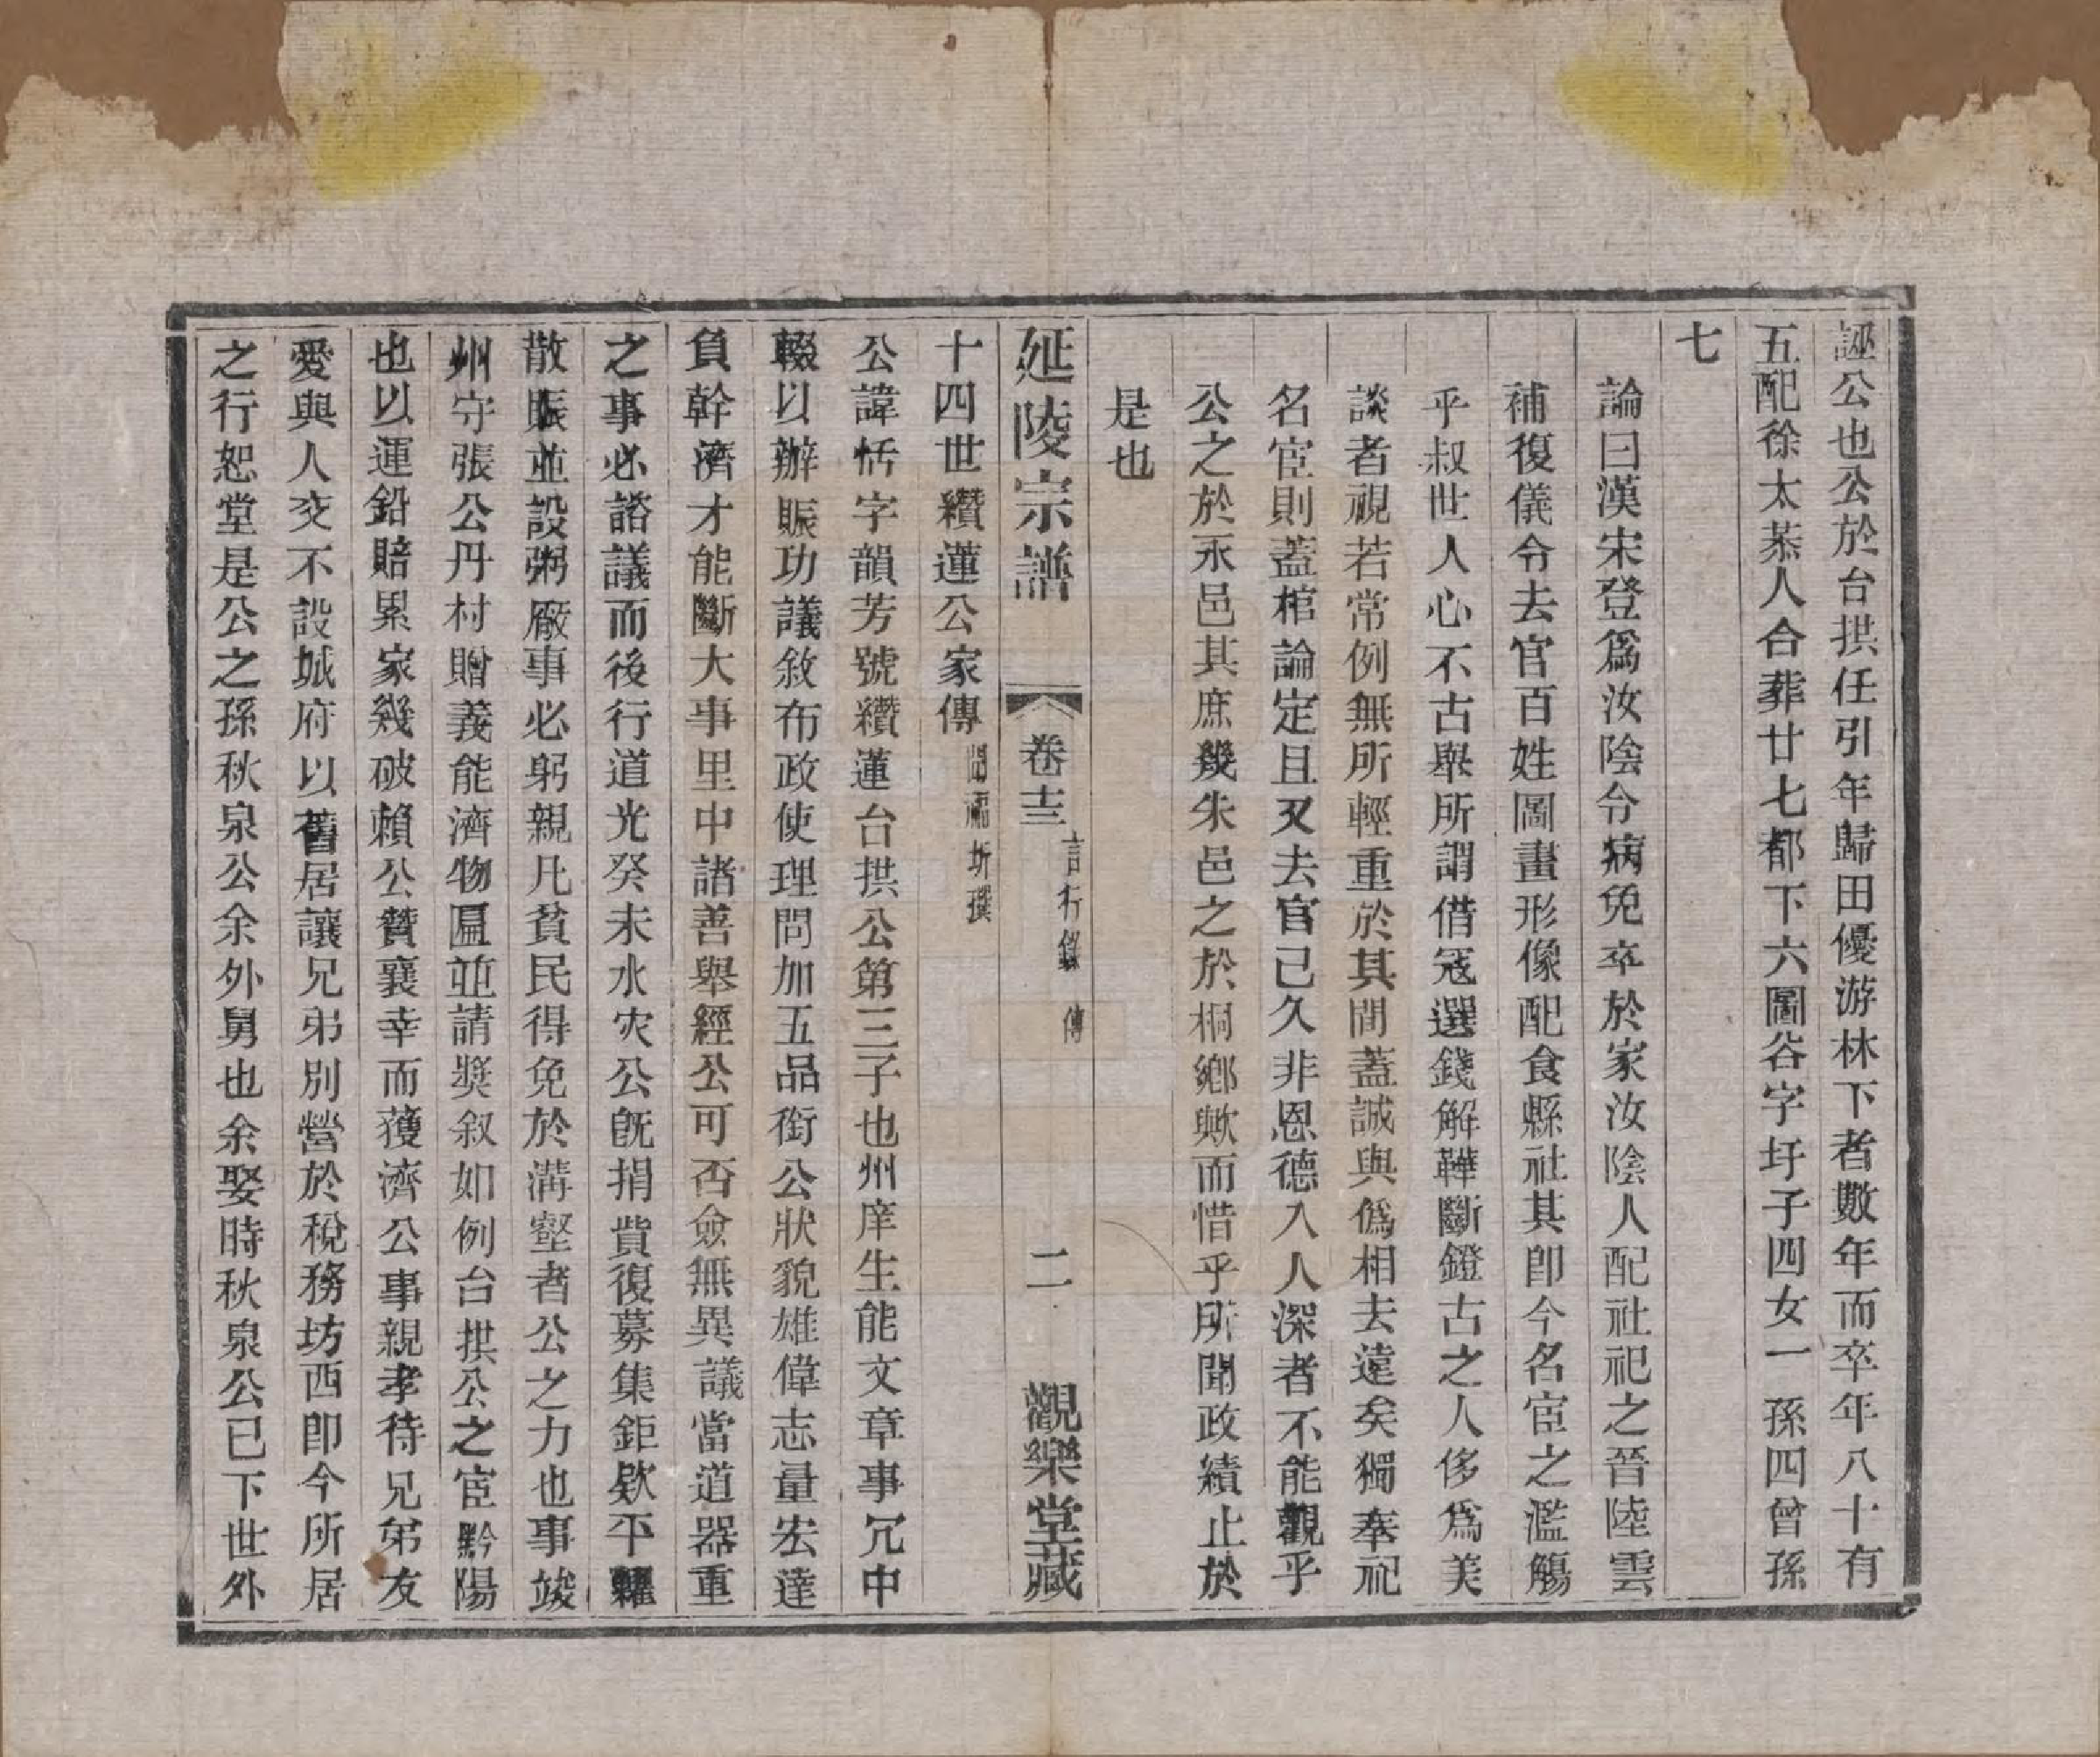 誣公也公於台拱任引年歸田優游林下者數年而卒年八十有
五配徐太恭人合葬廿七都下六圖谷字圩子四女一孫四曾孫
七
論曰漢宋登爲汝陰令病免卒於家汝陰人配社祀之晉陸雲
補復儀令去官百姓圖畫形像配食縣社其卽今名宦之濫觴
乎叔世人心不古舉所謂借冦選錢解鞾斷鐙古之人侈爲美
談者視若常例無所輕重於其間蓋誠與僞相去遠矣獨奉祀
名宦則蓋棺論定且又去官已久非恩德入人深者不能觀乎
公之於永邑其庶幾朱邑之於桐鄉歟而惜乎所聞政績止於
是也
延陵宗譜 卷十三 言行錄 傳 二 觀樂堂藏
十四世纘蓮公家傳
公諱恬字韻芳號纘蓮台拱公第三子也州庠生能文章事冗中
輟以辦賑功議敘布政使理問加五品銜公狀貌雄偉志量宏達
負幹濟才能斷大事里中諸善舉經公可否僉無異議當道器重
之事必諮議而後行道光癸未水灾公旣捐貲復募集鉅欵平糶
散賑並設粥廠事必躬親凡貧民得免於溝壑者公之力也事竣
州守張公丹村贈義能濟物匾並請獎叙如例台拱公之宦黔陽
也以運鉛賠累家幾破賴公贊襄幸而獲濟公事親孝待兄弟友
愛與人交不設城府以舊居讓兄弟別營於稅務坊西卽今所居
之行恕堂是公之孫秋泉公余外舅也余娶時秋泉公已下世外